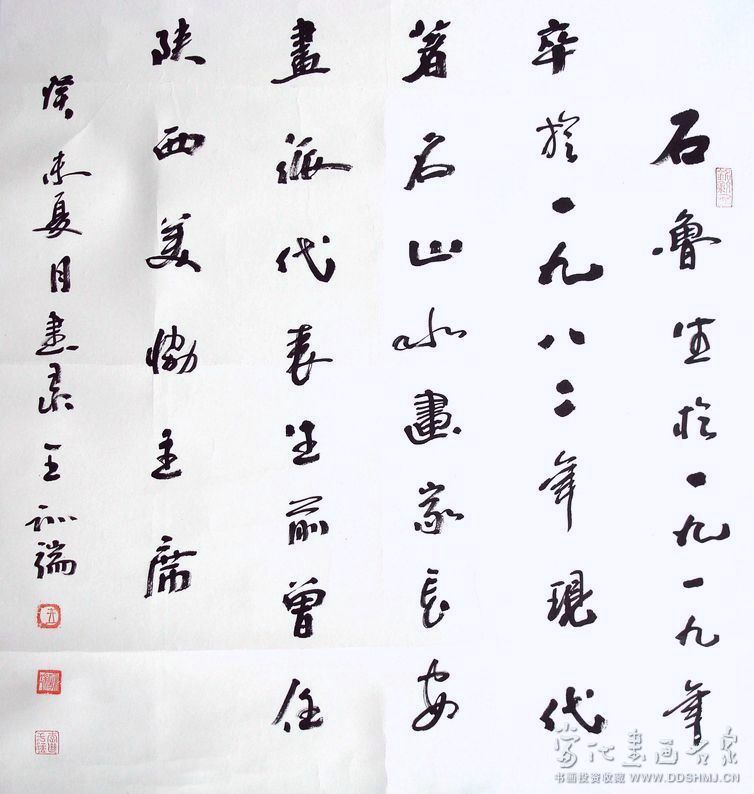 石魯生於一九一九年
卒於一九八二年現代
著名山水畫家長安
畫派代表生前曾任
陝西美協主席
癸未夏月書王端
当代書画名家
书画投资收藏 WWW.DDSHMJ.CN